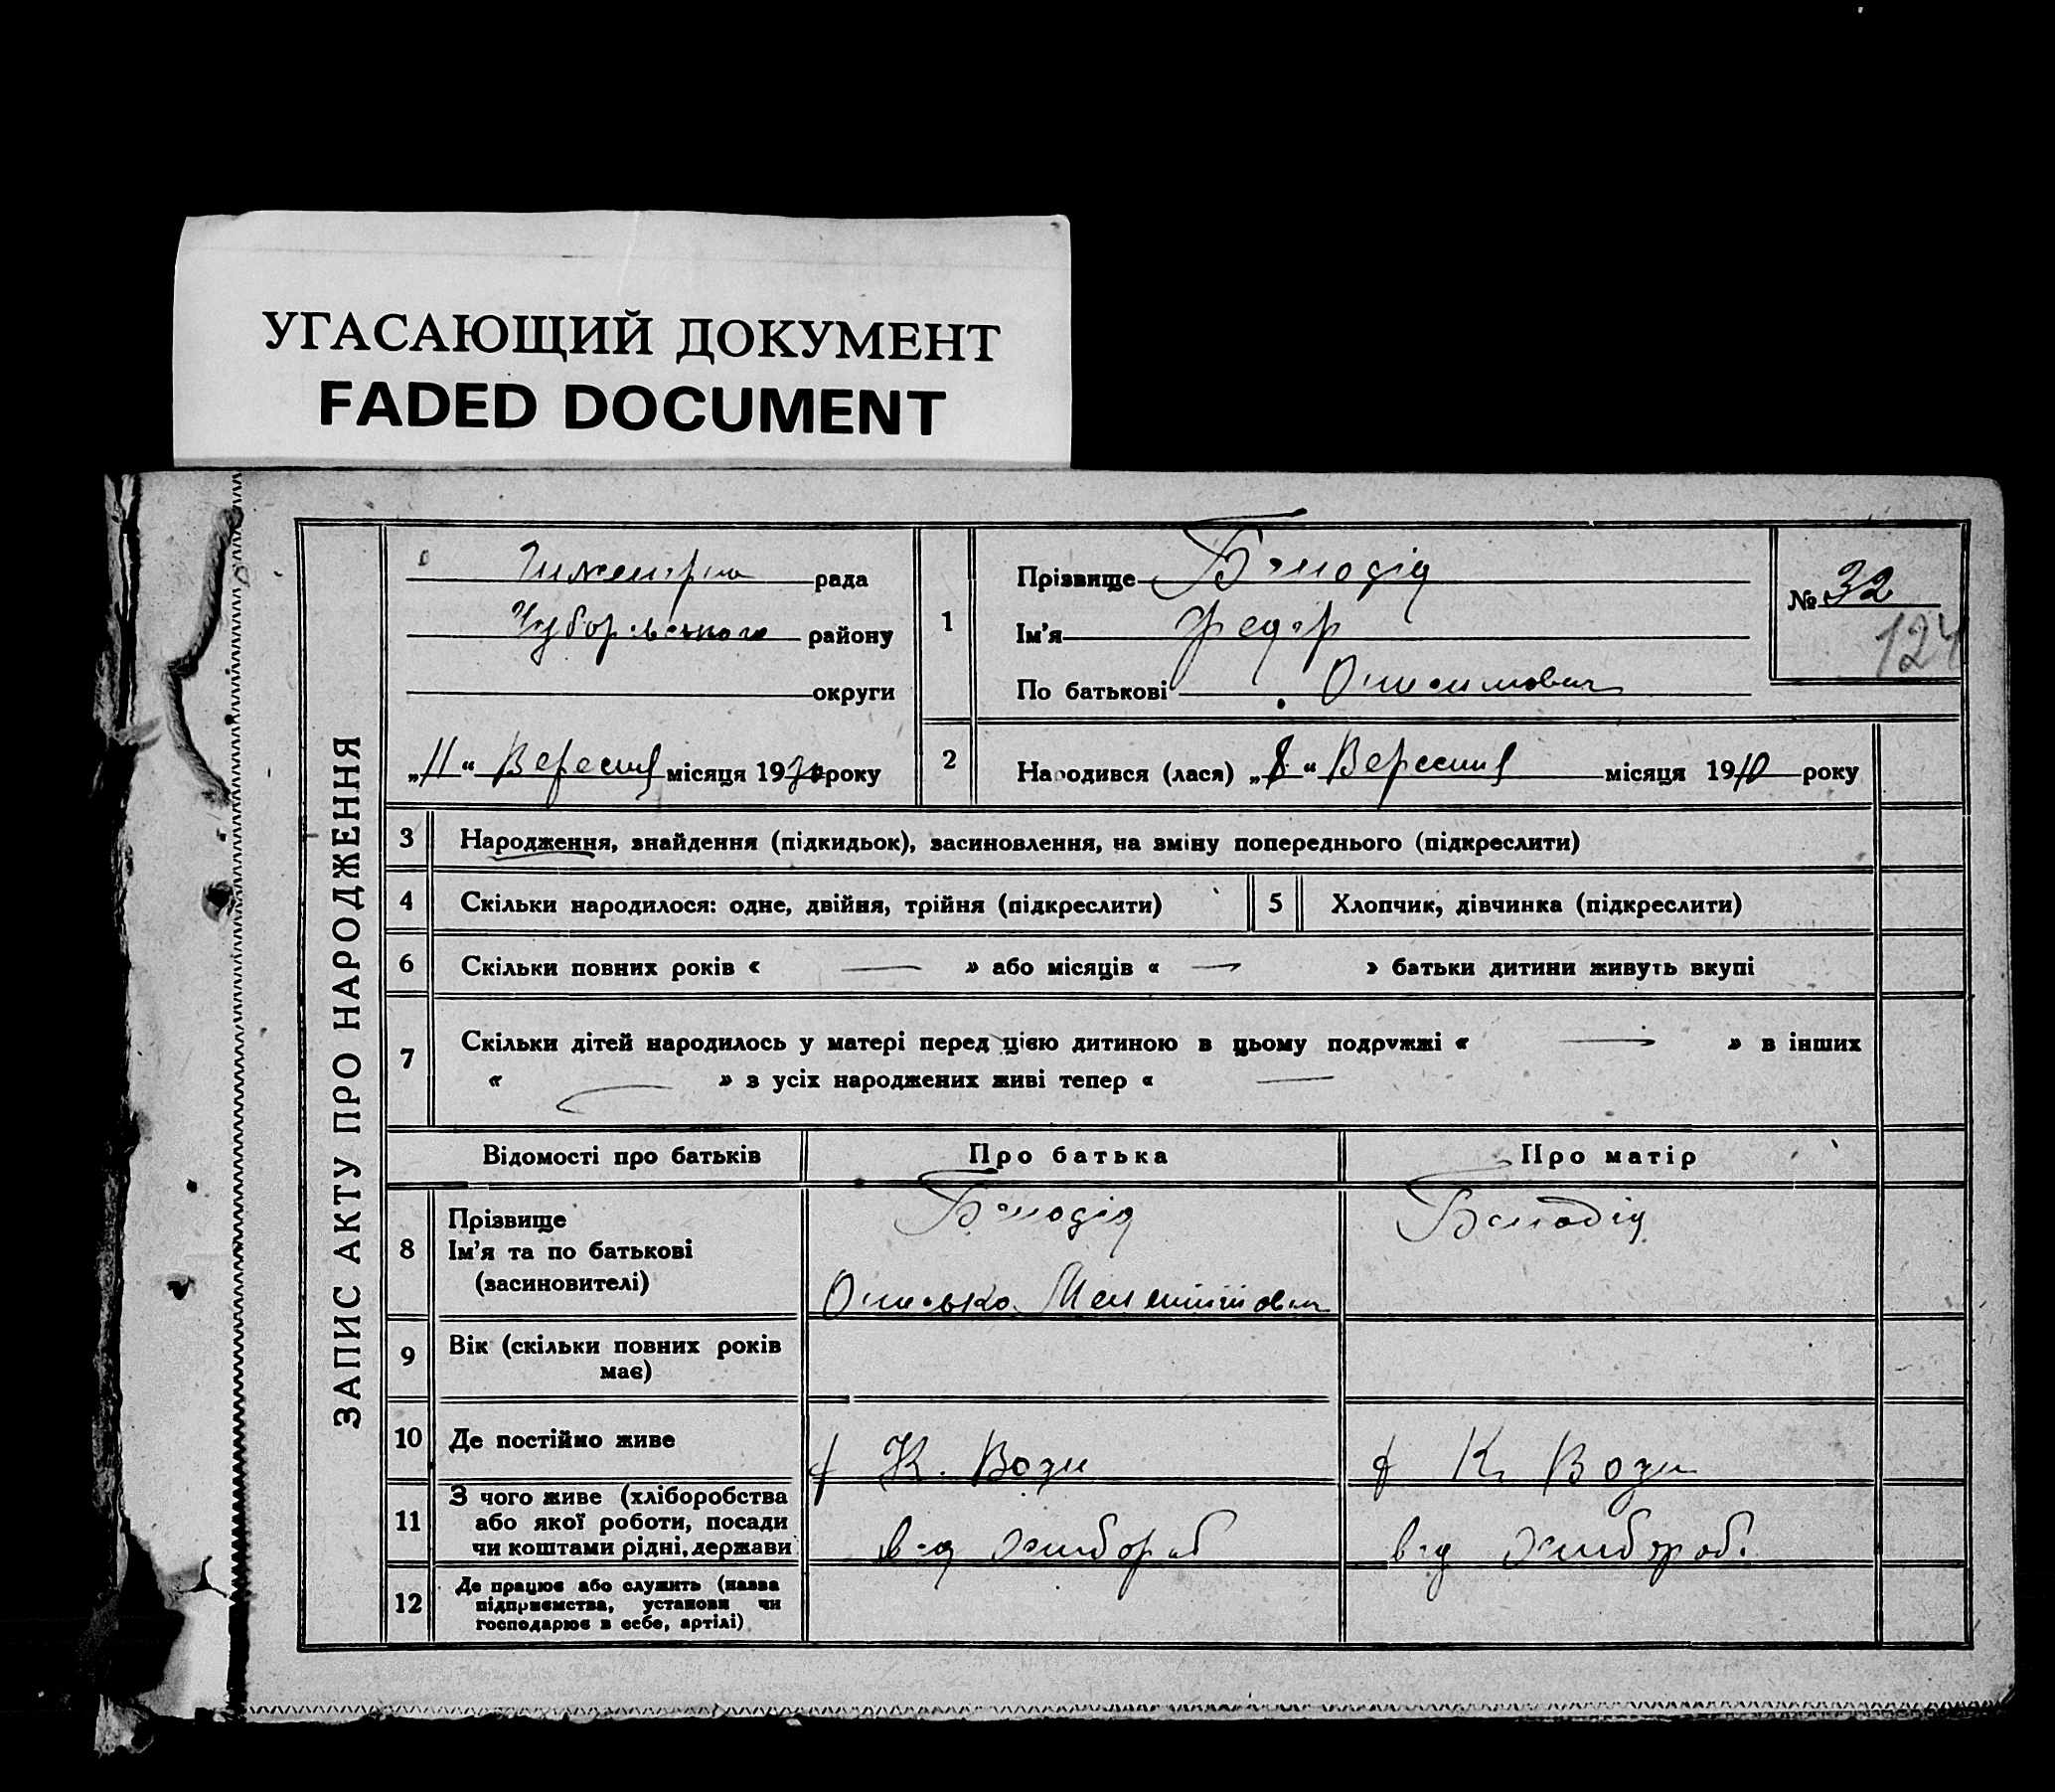 УГАСАЮЩИЙ ДОКУМЕНТ
FADED DOCUMENT
ЗАПИС АКТУ ПРО НАРОДЖЕННЯ
рада
району
округи
„11“ Вересня місяця 1930 року
1
Прізвище
Ім'я Федор
По батькові
№ 32
124
2
Народився (лася) „8“ Вересня місяця 1910 року
3
Народження, знайдення (підкидьок), засиновлення, на зміну попереднього (підкреслити)
4
Скільки народилося: одне, двійня, трійня (підкреслити)
5
Хлопчик, дівчинка (підкреслити)
6
Скільки повних років « — » або місяців « — » батьки дитини живуть вкупі
7
Скільки дітей народилось у матері перед цією дитиною в цьому подружжі « — » в інших
« — » з усіх народжених живі тепер « —
Відомості про батьків
Про батька
Про матір
8
Прізвище
Ім'я та по батькові
(засиновителі)
9
Вік (скільки повних років
має)
10
Де постійно живе
К. Води
К. Води
11
З чого живе (хліборобства
або якої роботи, посади
чи коштами рідні, держави
12
Де працює або служить (назва
підприємства, установи чи
господарює в себе, артілі)